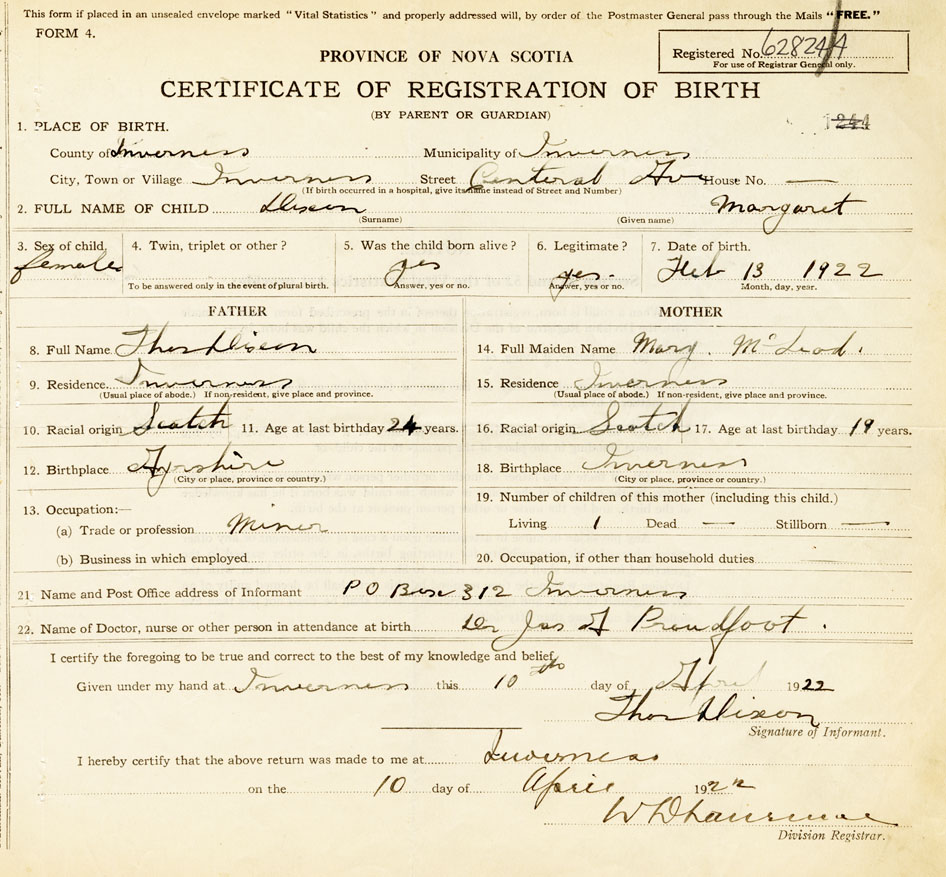 This form if placed in an unsealed envelope marked "Vital Statistics" and properly addressed will, by order of the Postmaster General pass through the Mails "FREE."
FORM 4.
Registered No. 62824A
For use of Registrar General only.
PROVINCE OF NOVA SCOTIA
CERTIFICATE OF REGISTRATION OF BIRTH
(BY PARENT OR GUARDIAN)
1. PLACE OF BIRTH.
County of Inverness Municipality of Inverness
City, Town or Village Inverness Street Centeral Ave House No. —
(If birth occurred in a hospital, give its name instead of Street and Number)
2. FULL NAME OF CHILD Dixon Margaret
(Surname) (Given name)
3. Sex of child. 4. Twin, triplet or other? 5. Was the child born alive? 6. Legitimate? 7. Date of birth.
female yes yes. Feb 13 1922
To be answered only in the event of plural birth. Answer, yes or no. Answer, yes or no. Month, day, year.
FATHER MOTHER
8. Full Name Thos Dixon 14. Full Maiden Name Mary. McLeod.
9. Residence Inverness 15. Residence Inverness
(Usual place of abode.) If non-resident, give place and province. (Usual place of abode.) If non-resident, give place and province.
10. Racial origin Scotch 11. Age at last birthday 24 years. 16. Racial origin Scotch 17. Age at last birthday 19 years.
12. Birthplace Ayrshire 18. Birthplace Inverness
(City or place, province or country.) (City or place, province or country.)
13. Occupation:— 19. Number of children of this mother (including this child.)
(a) Trade or profession Miner Living 1 Dead — Stillborn —
(b) Business in which employed 20. Occupation, if other than household duties
21 Name and Post Office address of Informant P O Box 312 Inverness
22. Name of Doctor, nurse or other person in attendance at birth Dr Jas Proudfoot.
I certify the foregoing to be true and correct to the best of my knowledge and belief.
Given under my hand at Inverness this 10th day of April 1922
Thos Dixon
Signature of Informant.
I hereby certify that the above return was made to me at Inverness
on the 10 day of April 1922
Division Registrar.